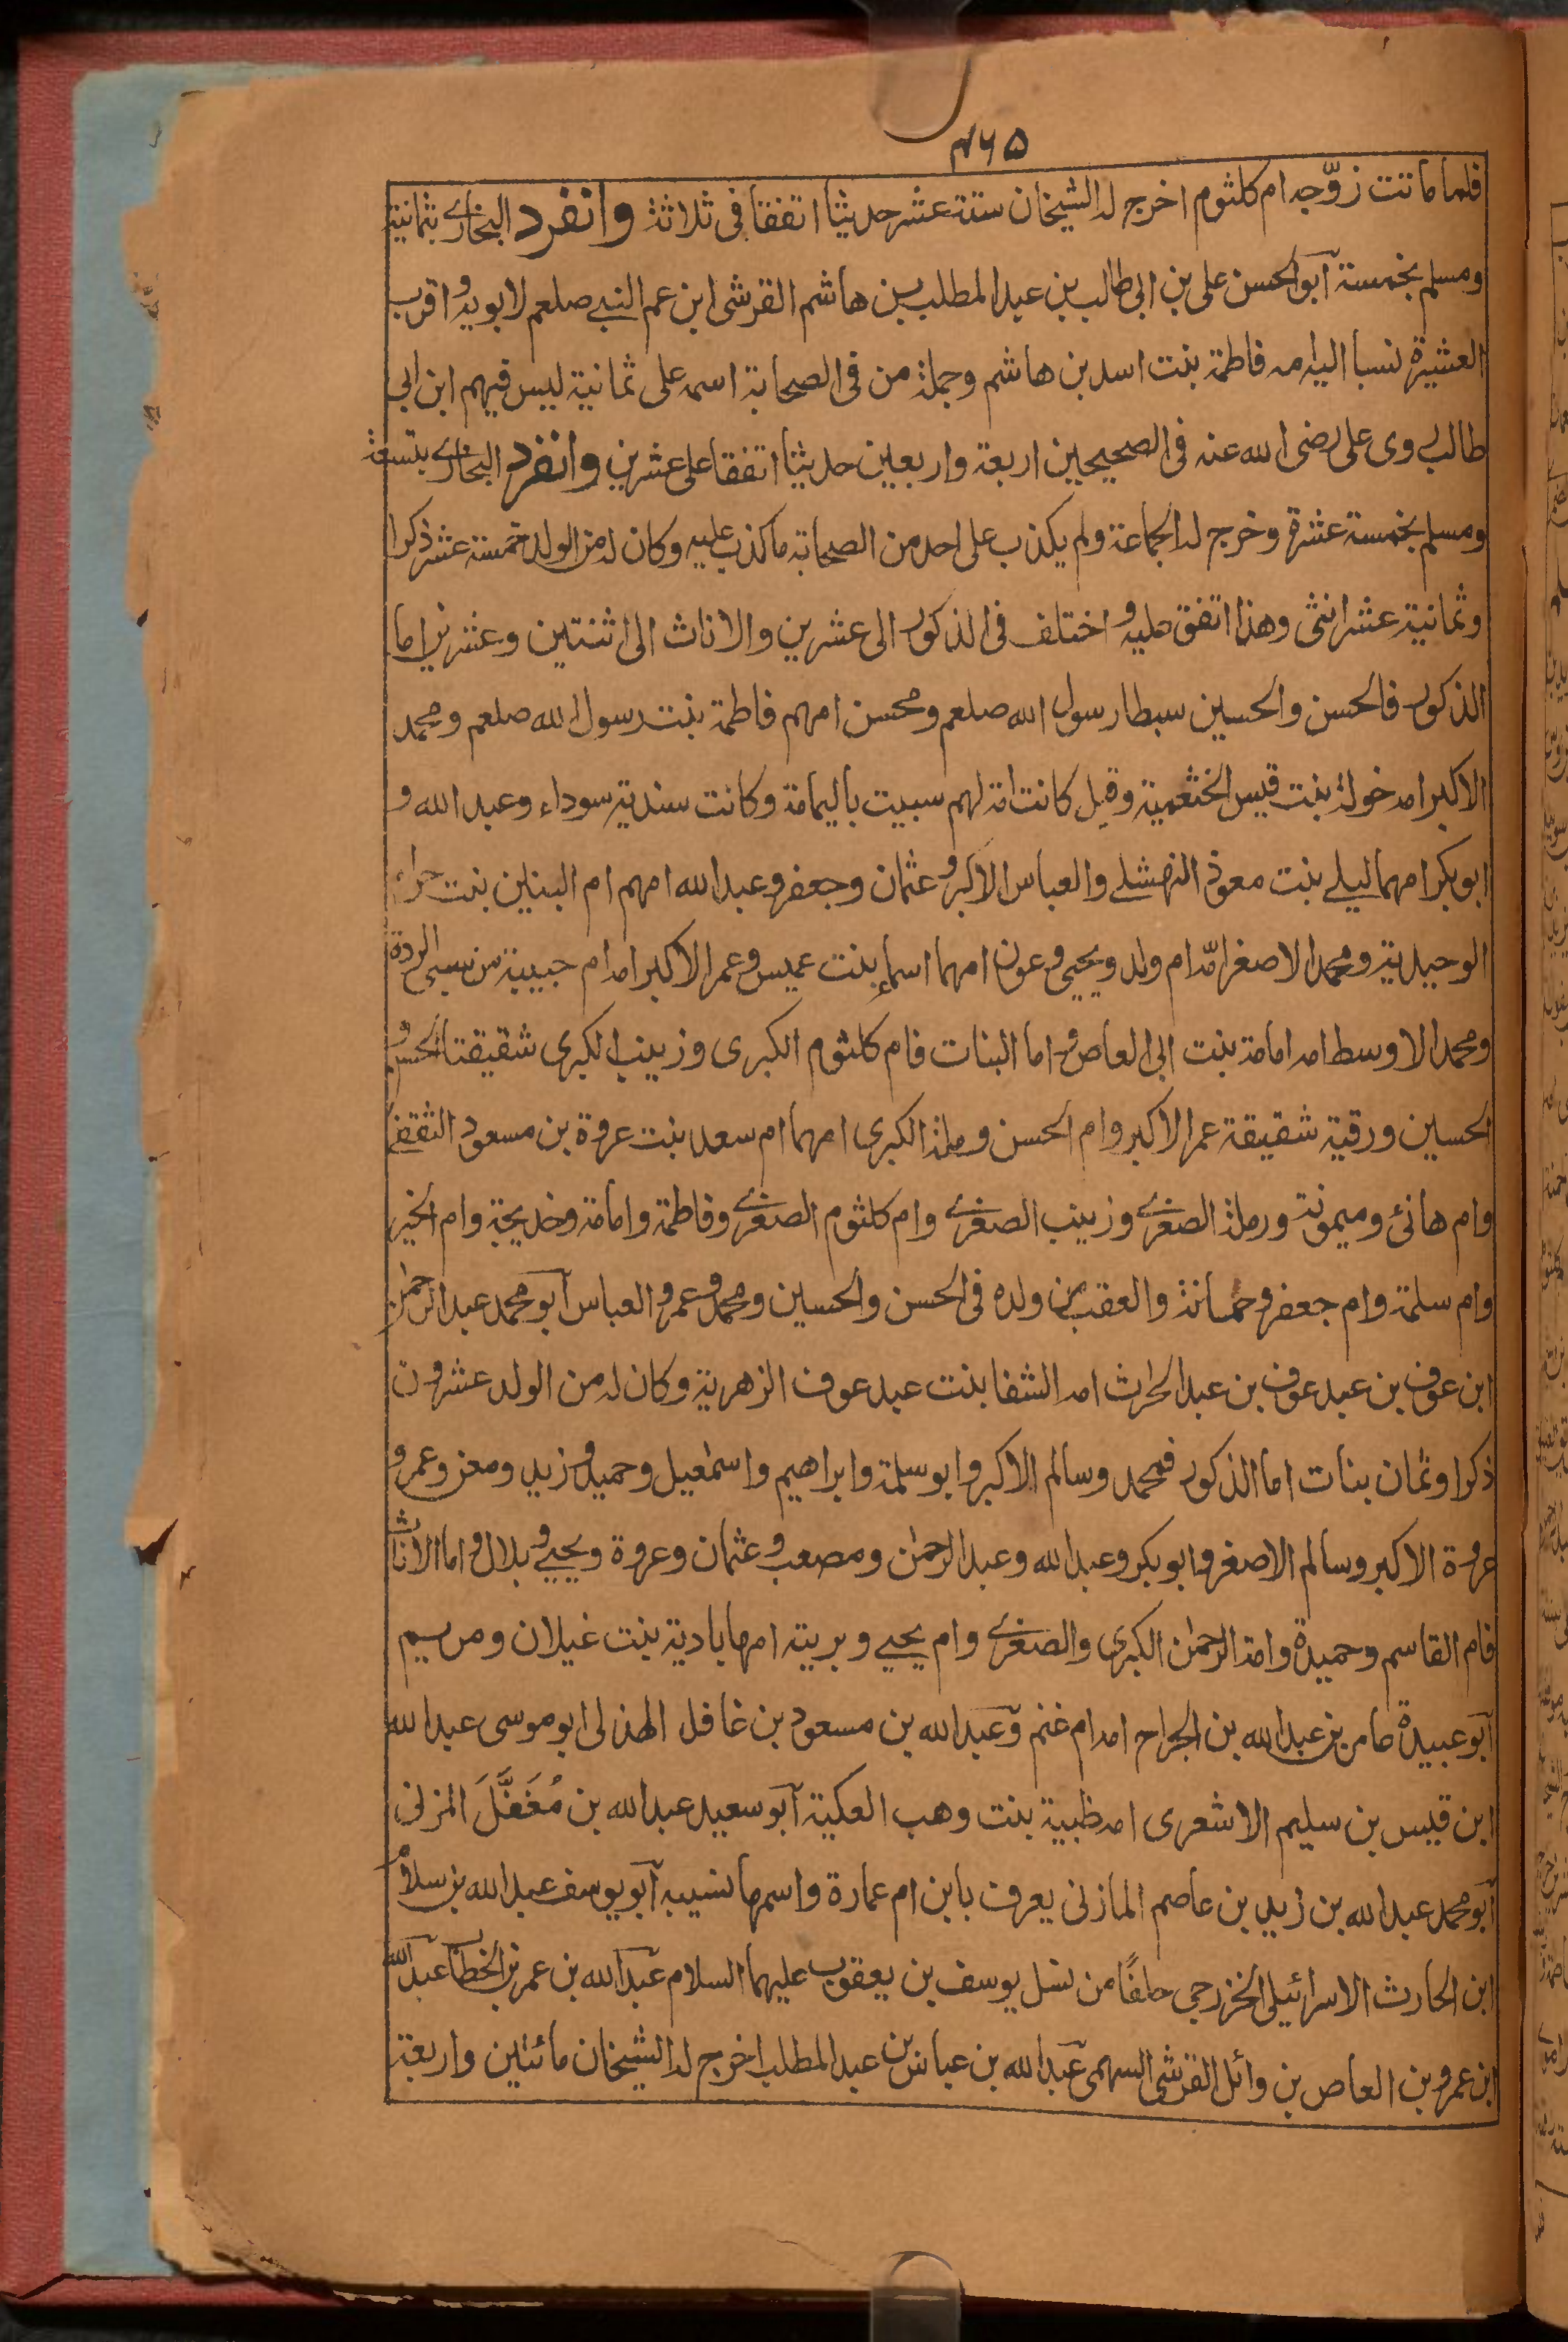 ۴۶۵
فلما ماتت زوّجه ام كلثوم اخرج له الشيخان ستة عشر حديثا اتفقا فى ثلاثة وانفرد البخارى بثمانية
ومسلم بخمسة آبو الحسن على بن ابى طالب بن عبد المطلب بن هاشم القرشى ابن عم النبى صلعم لابويه واقرب
العشيرة نسبا اليه امه فاطمة بنت اسد بن هاشم وجملة من فى الصحابة اسمه على ثمانية ليس فيهم ابن ابى
طالب روى على رضى الله عنه فى الصحيحين اربعة واربعين حديثا اتفقا على عشرين وانفرد البخارى بتسعة
ومسلم بخمسة عشرة وخرج له الجماعة ولم يكذب على احد من الصحابة ما كذب عليه وكان له من الولد خمسة عشر ذكرا
وثمانية عشر انثى وهذا اتفق عليه واختلف فى الذكور الى عشرين والاناث الى اثنتين وعشرين اما
الذكور فالحسن والحسين سبطا رسول الله صلعم ومحسن امهم فاطمة بنت رسول الله صلعم ومحمد
الاكبر امه خولة بنت قيس الخثعمية وقيل كانت امة لهم سبيت باليمامة وكانت سندية سوداء وعبد الله و
ابو بكر امهما ليلى بنت معوذ النهشلى والعباس الاكبر وعثمان وجعفر وعبد الله امهم ام البنين بنت حرام
الوحيدية ومحمد الاصغر امّه ام ولد ويحيى وعون امهما اسماء بنت عميس وعمر الاكبر امه ام حبيبة من سبى الردة
ومحمد الاوسط امه امامة بنت ابى العاص واما البنات فام كلثوم الكبرى وزينب الكبرى شقيقتا الحسن و
الحسين ورقية شقيقة عمر الاكبر وام الحسن ورملة الكبرى امهما ام سعد بنت عروة بن مسعود الثقفى
وام هانئ وميمونة ورملة الصغرى وزينب الصغرى وام كلثوم الصغرى وفاطمة وامامة وخديجة وام الخير
وام سلمة وام جعفر وجمانة والعقب من ولده فى الحسن والحسين ومحمد وعمر والعباس آبو محمد عبد الرحمن
ابن عوف بن عبد عوف بن عبد الحارث امه الشفا بنت عبد عوف الزهرية وكان له من الولد عشرون
ذكرا وثمان بنات اما الذكور فمحمد وسالم الاكبر وابو سلمة وابراهيم واسمٰعيل وحميد وزيد ومعن وعمر و
عروة الاكبر وسالم الاصغر وابو بكر وعبد الله وعبد الرحمٰن ومصعب وعثمان وعروة ويحيى وبلال واما الاناث
فام القاسم وحميدة وامة الرحمٰن الكبرى والصغرى وام يحيى وبرية امها بادية بنت غيلان ومريم
آبو عبيدة عامر بن عبد الله بن الجراح امه ام غنم وٓعبد الله بن مسعود بن غافل الهذلى ابو موسى عبد الله
ابن قيس بن سليم الاشعرى امه ظبية بنت وهب العكية آبو سعيد عبد الله بن مُغَفَّلَ المزنى
آبو محمد عبد الله بن زيد بن عاصم المازنى يعرف بابن ام عمارة واسمها نسيبه آبو يوسف عبد الله بن سلام
ابن الحارث الاسرائيلى الخزرجى حلفًا من نسل يوسف بن يعقوب عليهما السلام عبد الله بن عمر بن الخطاب عبد الله
ابن عمرو بن العاص بن وائل القرشى السهمى عبد الله بن عباس بن عبد المطلب اخرج له الشيخان مائتين واربعة